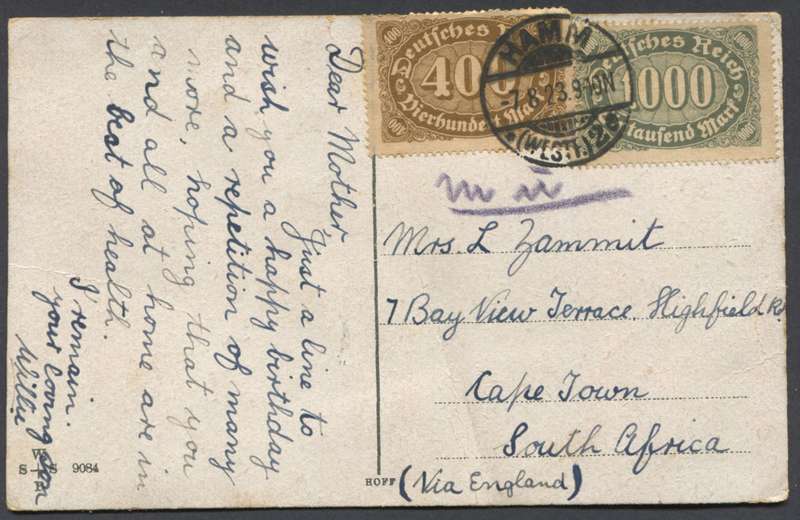 Dear Mother,
Just a line to
wish you a happy birthday
and a repetition of many
more, hoping that you
and all at home are in
the best of health.
I remain.
your loving son
Willie
S S 9084
HOFF
400 Deutsches Reich 400
400
Vierhundert Mark
400
HAMM
-7.8.23.9-10N
*(WESTF.)2*
Deutsches Reich 1000
1000
tausend Mark
Mrs. L Zammit
7 Bay View Terrace. Highfield Rd
Cape Town
South Africa
(Via England)